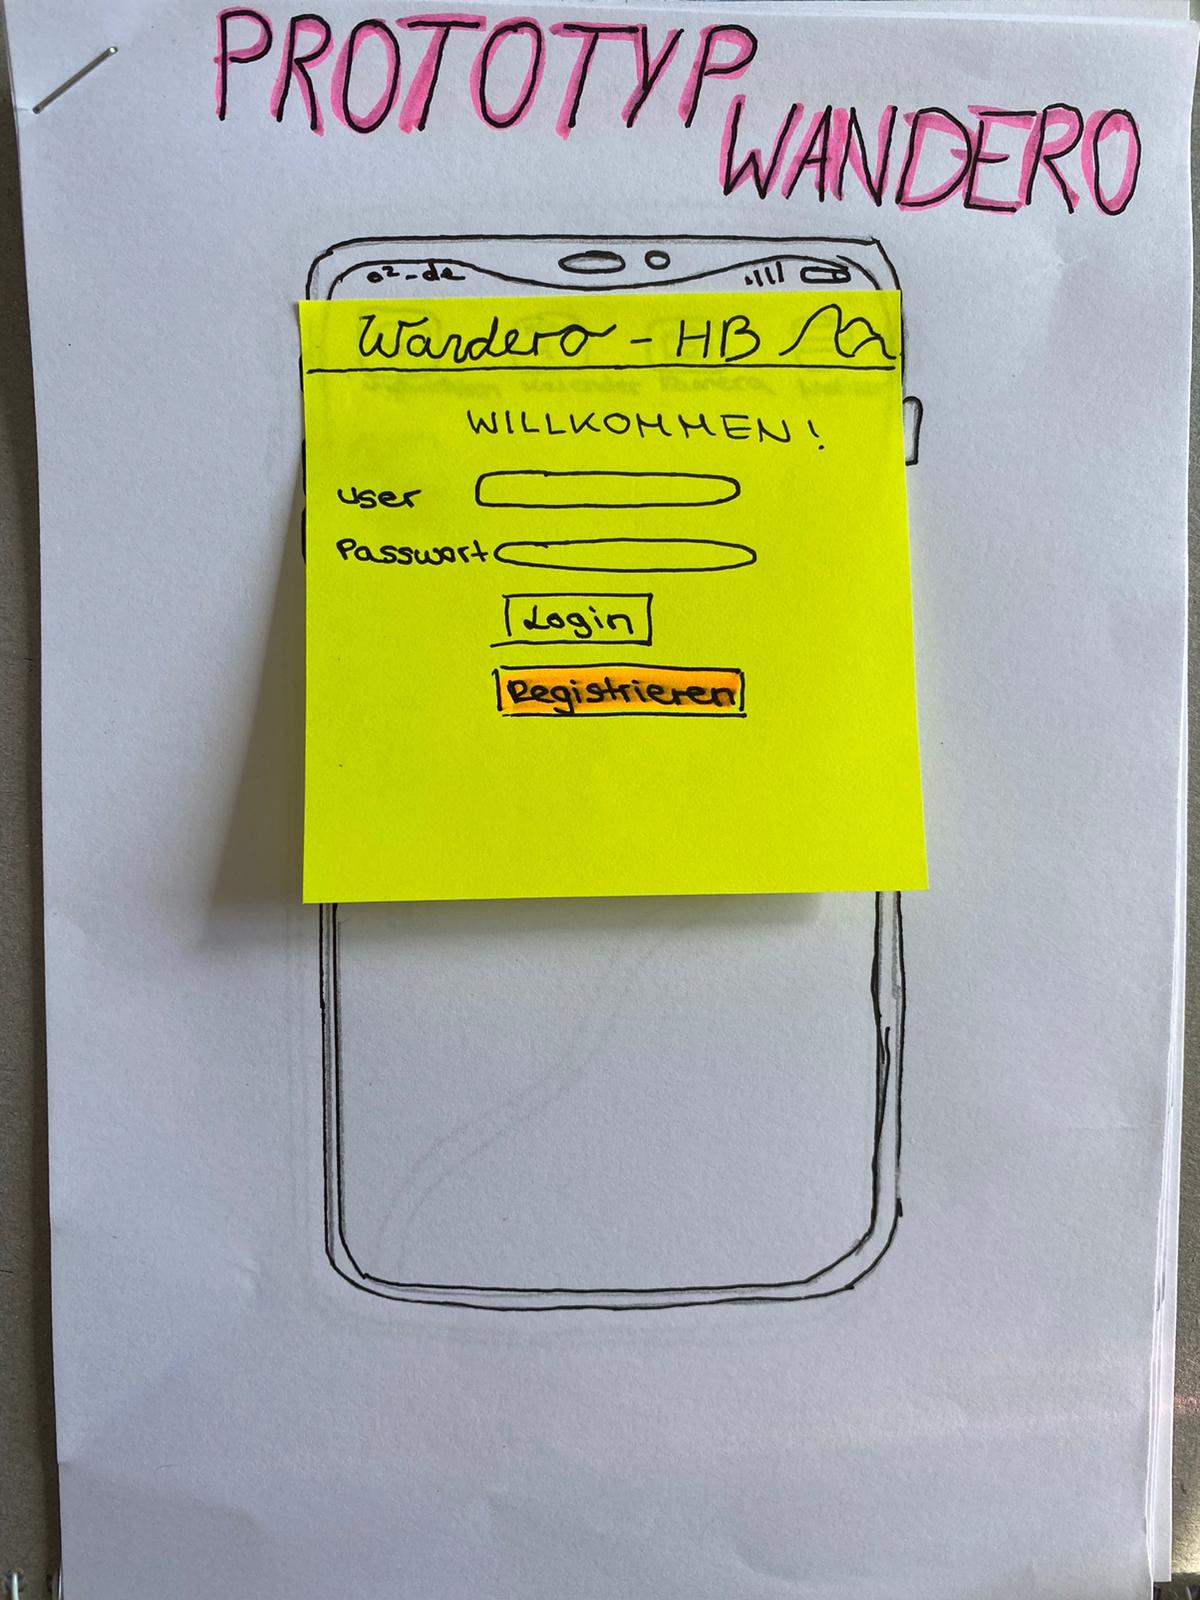 PROTOTYP
WANDERO
o2-de
Wandero - HB
WILLKOMMEN!
user
Passwort
Login
Registrieren